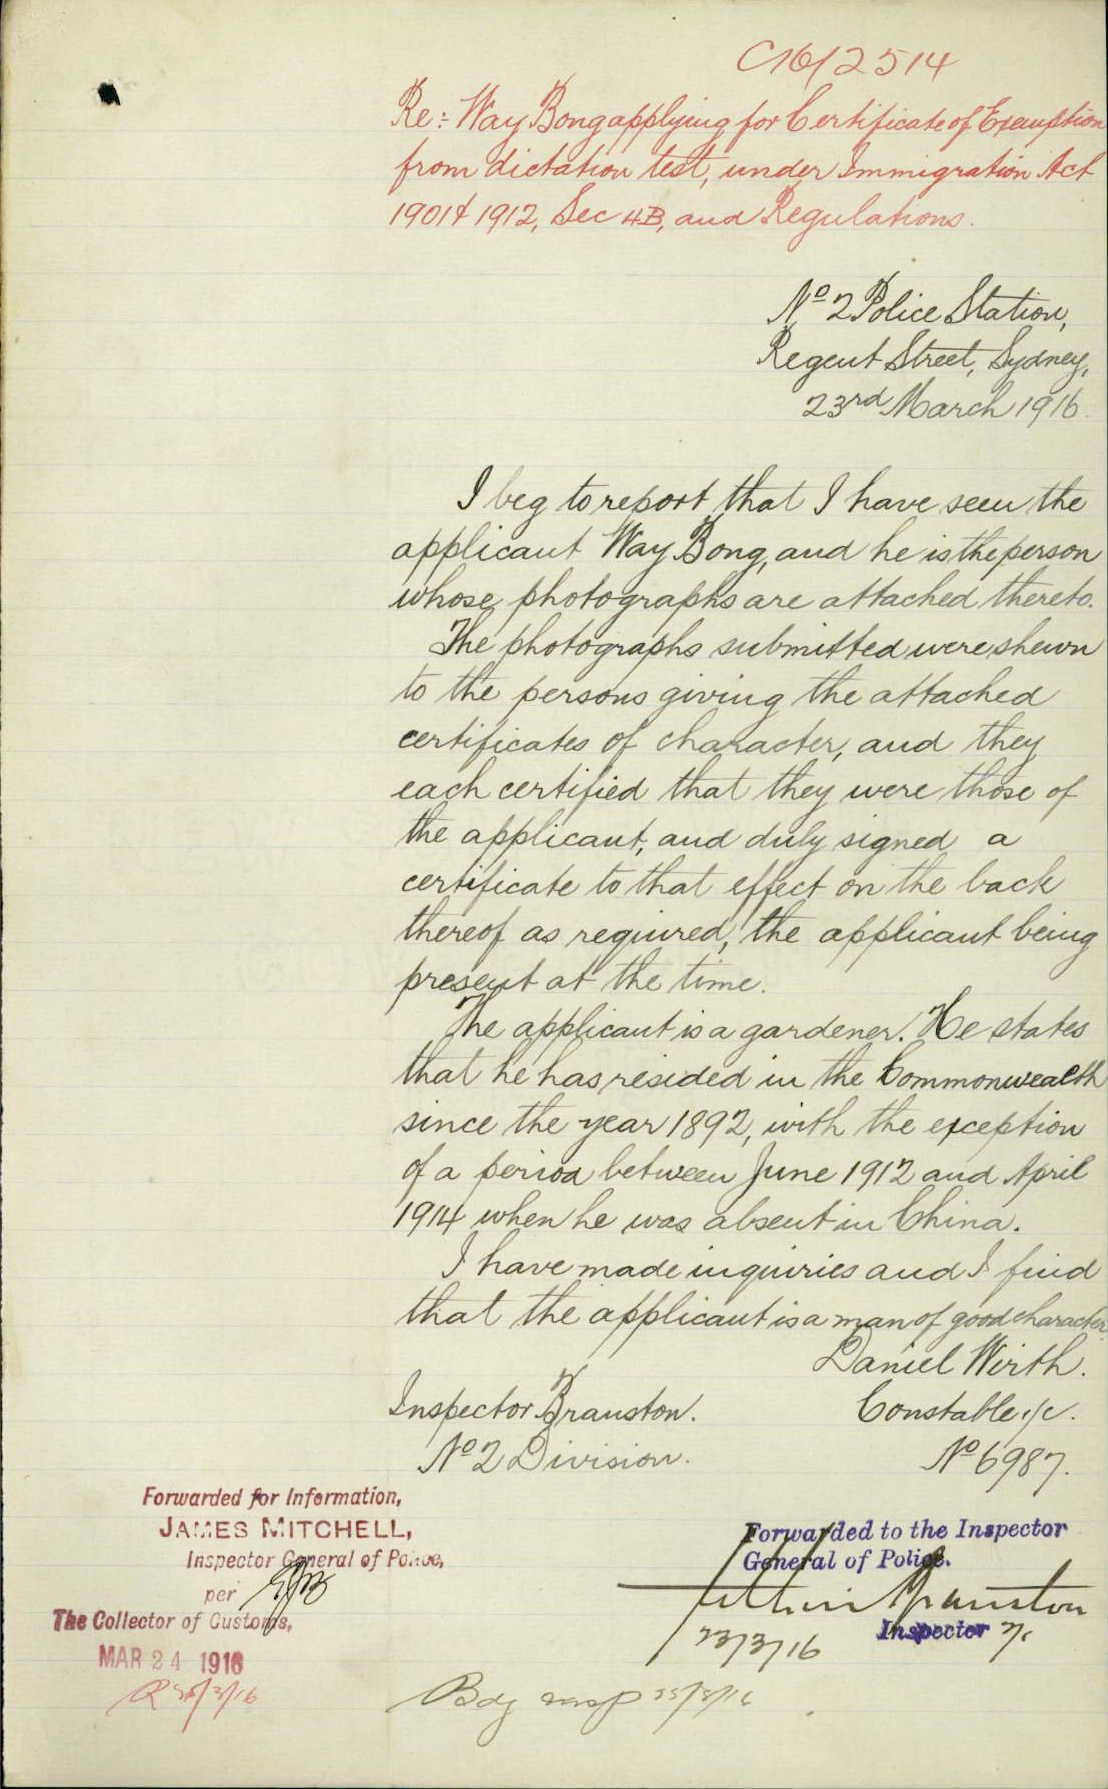 C16/2514
Re:- Way Bong applying for Certificate of Exemption
from dictation test, under Immigration Act
1901 & 1912, Sec 4B, and Regulations.
No 2 Police Station,
Regent Street, Sydney,
23rd March 1916
I beg to report that I have seen the
applicant Way Bong, and he is the person
whose photographs are attached thereto.
The photographs submitted were shewn
to the persons giving the attached
certificates of character, and they
each certified that they were those of
the applicant, and duly signed a
certificate to that effect on the back
thereof as required, the applicant being
present at the time.
The applicant is a gardener. He states
that he has resided in the Commonwealth
since the year 1892, with the exception
of a period between June 1912 and April
1914 when he was absent in China.
I have made inquiries and I find
that the applicant is a man of good character
Daniel Wirth.
Inspector Branston. Constable 1/c.
No 2 Division. No 6987.
Forwarded for Information,
JAMES MITCHELL,
Inspector General of Police,
per
The Collector of Customs,
MAR 24 1916
Forwarded to the Inspector
General of Police.
Branston
23/3/16 Inspector